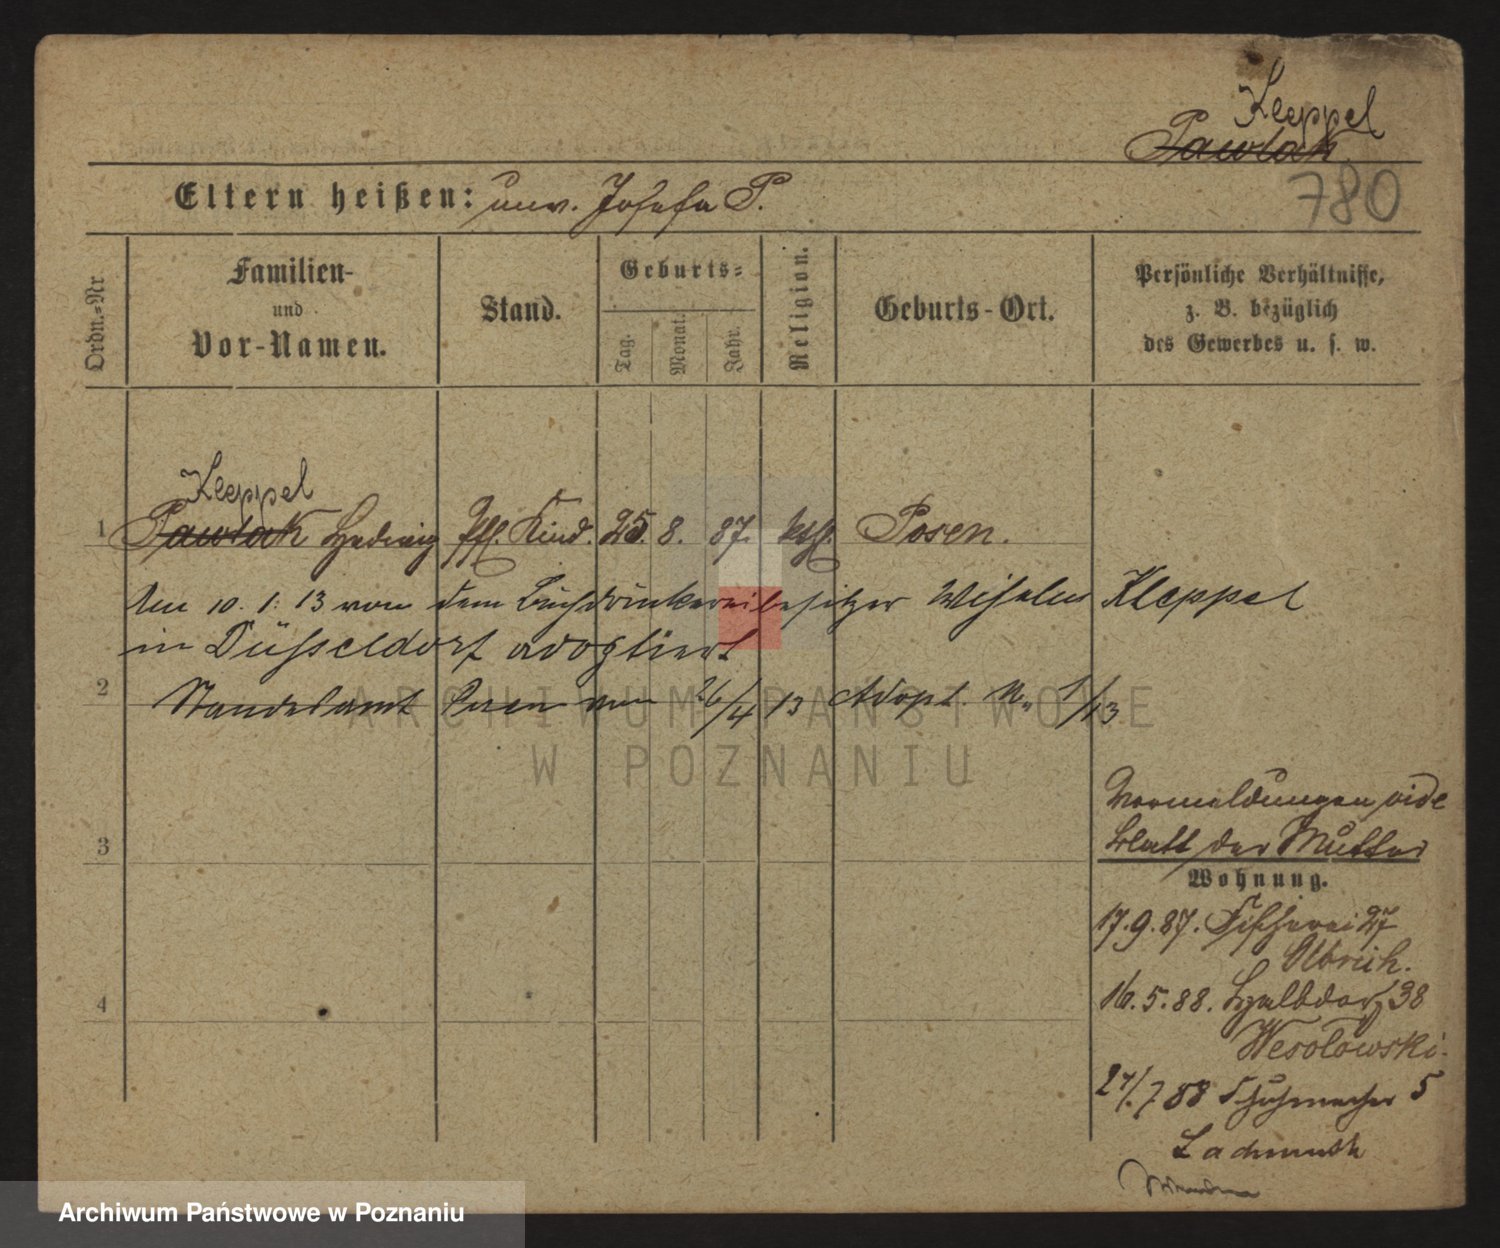 Kleppel
Pawlak
780
Eltern heißen: unv. Josefa P.
Ordn.-Nr
Familien- und Vor-Namen.
Stand.
Geburts-
Tag. Monat. Jahr.
Religion.
Geburts-Ort.
Persönliche Verhältnisse,
z. B. bezüglich
des Gewerbes u. s. w.
Kleppel
1 Pawlak Hedwig Pfl. Kind. 25. 8. 87. kth. Posen.
Am 10. 1. 13 von dem Buchdruckereibesitzer Wilhelm Kleppel
in Düsseldorf adoptiert
2 Standesamt Posen vom 26/4 13 Adopt. N. 1/13
ARCHIWUM PAŃSTWOWE
W POZNANIU
Vormeldungen vide
Blatt der Mutter
3
Wohnung.
17.9.87. Fischerei 27
Olbrich.
4
16.5.88. Halbdorf 38
Wesolowski.
27/.7 88 Schuhmacher 5
Lachmuth
Archiwum Państwowe w Poznaniu